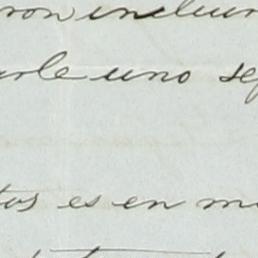 ron incluir
arle uno se
tos es en m